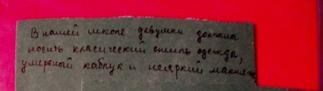 В нашей школе девушки должна
носить класический стиль одежда,
умерной каблук и неяркий макияж